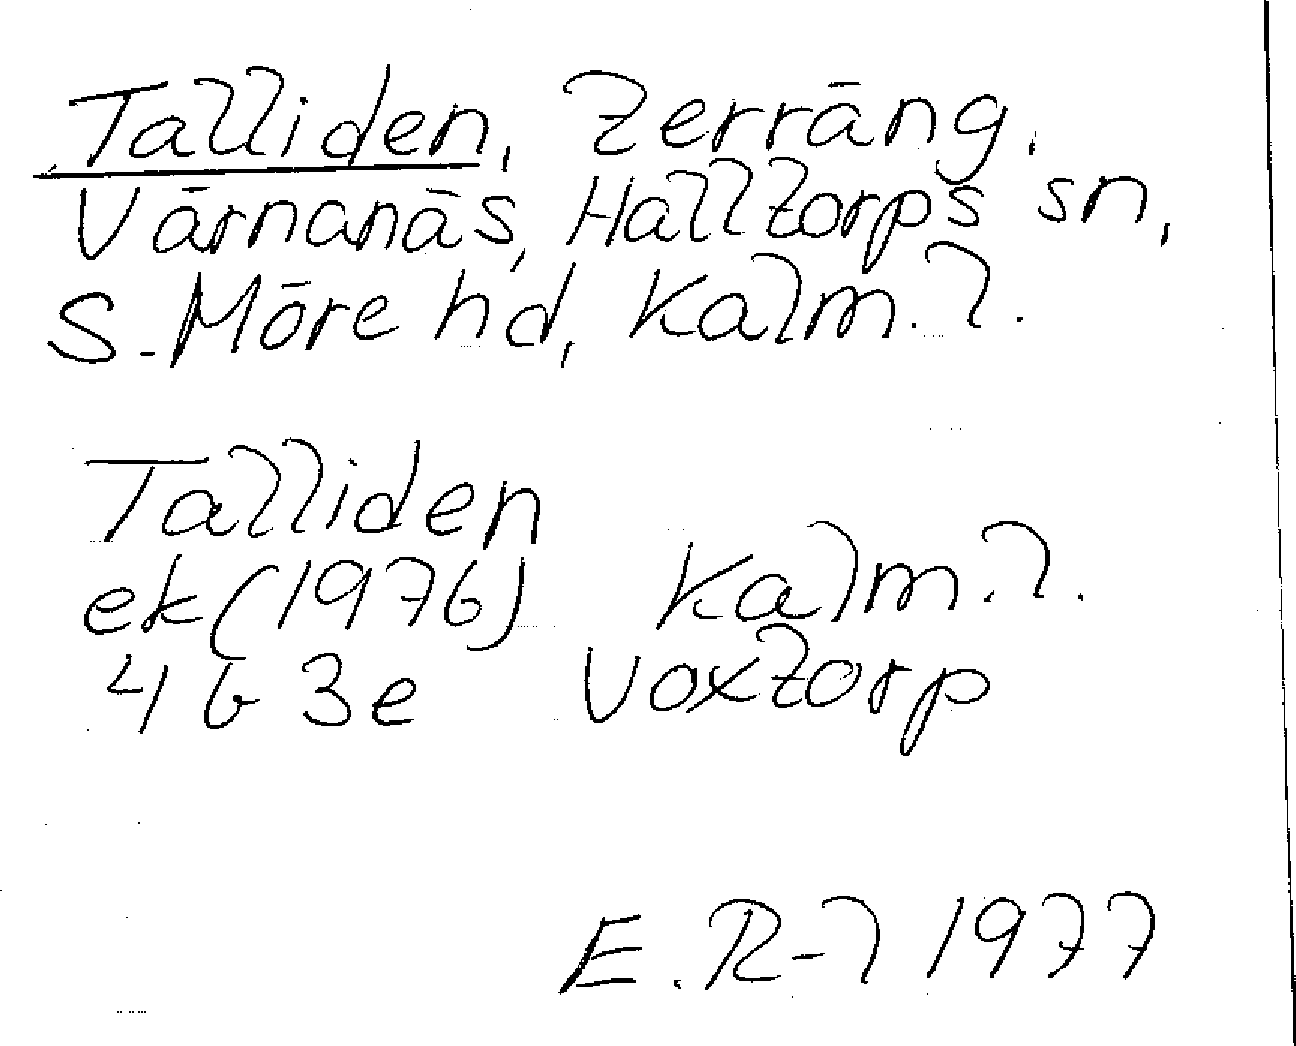 Talliden, terräng.
Värnanäs, Halltorps sn,
S. Möre hd, Kalm. l.
Talliden
ek (1976) Kalm. l.
4 G 3e Voxtorp
E. R-l 1977